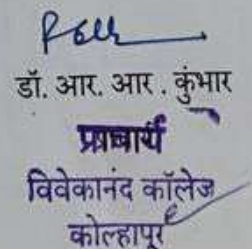 डॉ. आर. आर . कुंभार
प्राचार्य
विवेकानंद कॉलेज
कोल्हापूर